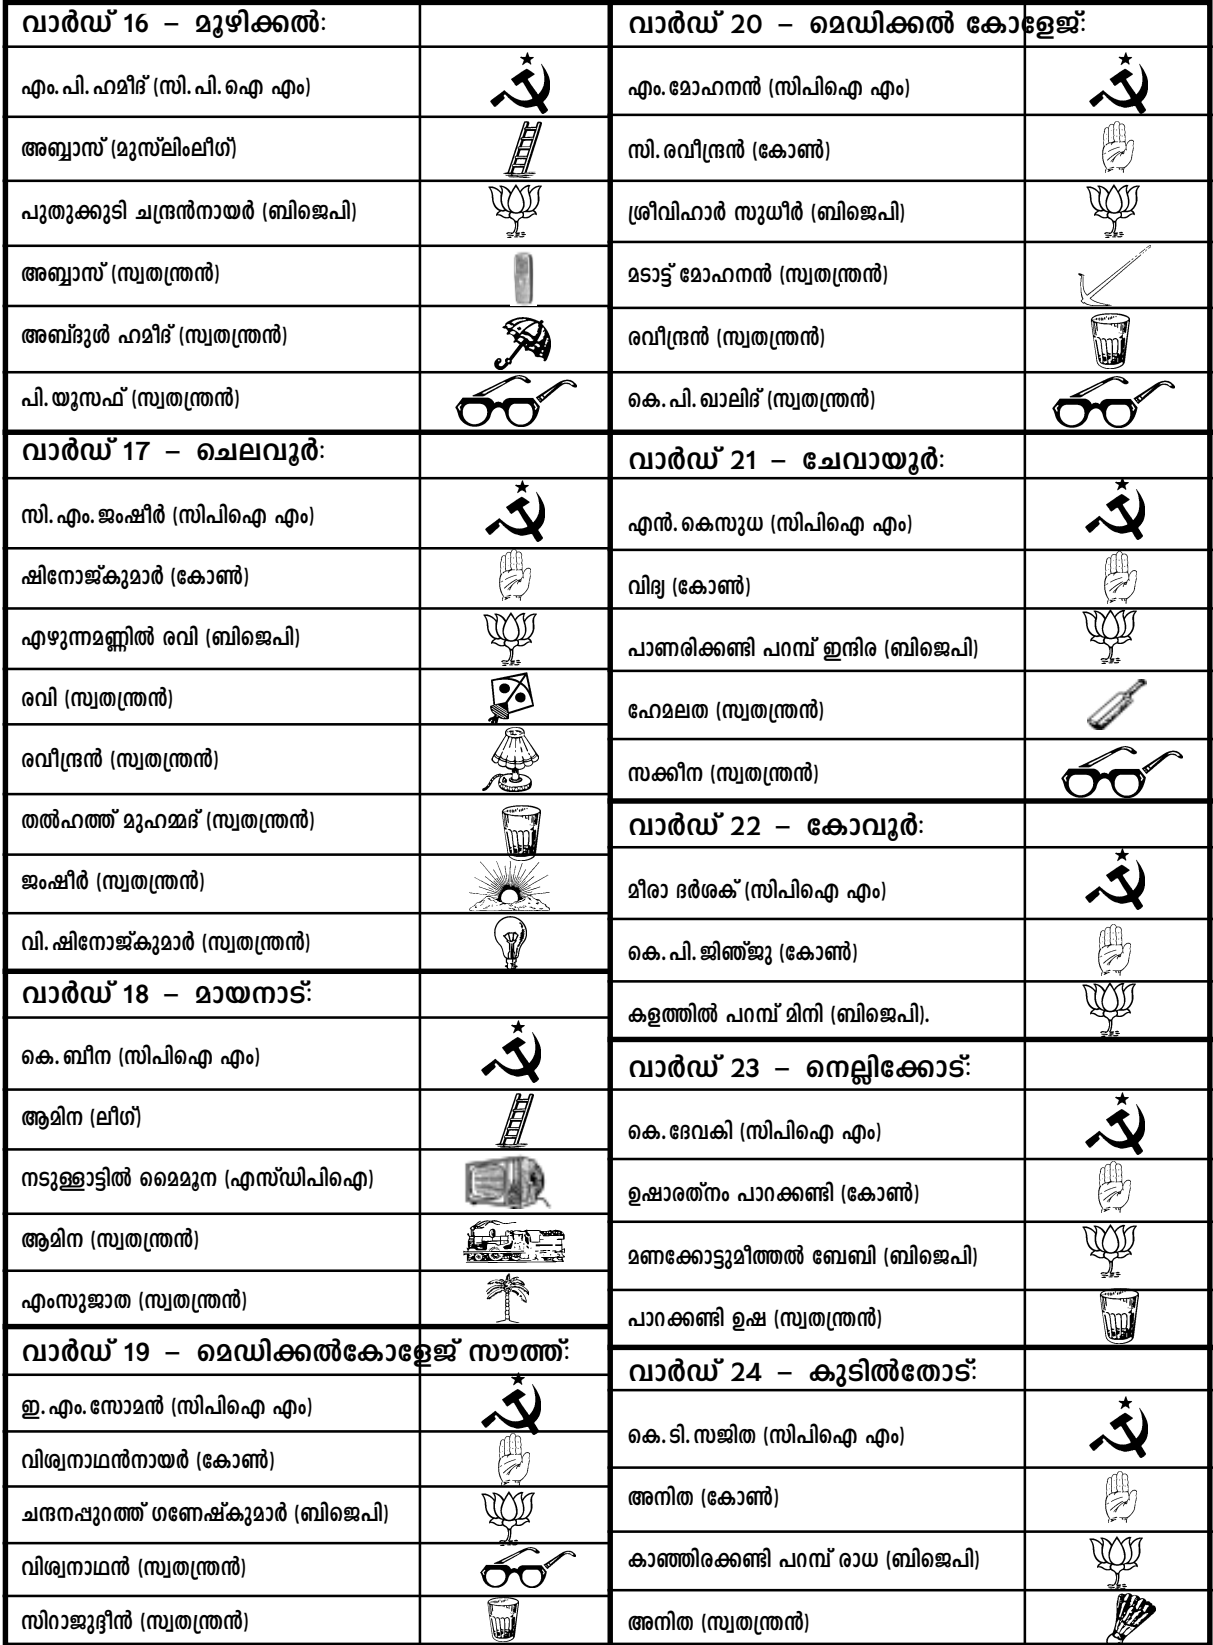 വാർഡ് 16 – മൂഴിക്കൽ:
എം.പി.ഹമീദ് (സി.പി.ഐ എം)
അബ്ബാസ് (മുസ്‌ലിംലീഗ്)
പുതുക്കുടി ചന്ദ്രൻനായർ (ബിജെപി)
അബ്ബാസ് (സ്വതന്ത്രൻ)
അബ്ദുൾ ഹമീദ് (സ്വതന്ത്രൻ)
പി.യൂസഫ് (സ്വതന്ത്രൻ)
വാർഡ് 17 – ചെലവൂർ:
സി.എം.ജംഷീർ (സിപിഐ എം)
ഷിനോജ്കുമാർ (കോൺ)
എഴുന്നമണ്ണിൽ രവി (ബിജെപി)
രവി (സ്വതന്ത്രൻ)
രവീന്ദ്രൻ (സ്വതന്ത്രൻ)
തൽഹത്ത് മുഹമ്മദ് (സ്വതന്ത്രൻ)
ജംഷീർ (സ്വതന്ത്രൻ)
വി.ഷിനോജ്കുമാർ (സ്വതന്ത്രൻ)
വാർഡ് 18 – മായനാട്:
കെ.ബീന (സിപിഐ എം)
ആമിന (ലീഗ്)
നടുള്ളാട്ടിൽ മൈമൂന (എസ്ഡിപിഐ)
ആമിന (സ്വതന്ത്രൻ)
എംസുജാത (സ്വതന്ത്രൻ)
വാർഡ് 19 – മെഡിക്കൽകോളേജ് സൗത്ത്:
ഇ.എം.സോമൻ (സിപിഐ എം)
വിശ്വനാഥൻനായർ (കോൺ)
ചന്ദനപ്പുറത്ത് ഗണേഷ്കുമാർ (ബിജെപി)
വിശ്വനാഥൻ (സ്വതന്ത്രൻ)
സിറാജുദ്ദീൻ (സ്വതന്ത്രൻ)
വാർഡ് 20 – മെഡിക്കൽ കോളേജ്:
എം.മോഹനൻ (സിപിഐ എം)
സി.രവീന്ദ്രൻ (കോൺ)
ശ്രീവിഹാർ സുധീർ (ബിജെപി)
മടാട്ട് മോഹനൻ (സ്വതന്ത്രൻ)
രവീന്ദ്രൻ (സ്വതന്ത്രൻ)
കെ.പി.ഖാലിദ് (സ്വതന്ത്രൻ)
വാർഡ് 21 – ചേവായൂർ:
എൻ.കെസുധ (സിപിഐ എം)
വിദ്യ (കോൺ)
പാണരിക്കണ്ടി പറമ്പ് ഇന്ദിര (ബിജെപി)
ഹേമലത (സ്വതന്ത്രൻ)
സക്കീന (സ്വതന്ത്രൻ)
വാർഡ് 22 – കോവൂർ:
മീരാ ദർശക് (സിപിഐ എം)
കെ.പി.ജിഞ്ജു (കോൺ)
കളത്തിൽ പറമ്പ് മിനി (ബിജെപി).
വാർഡ് 23 – നെല്ലിക്കോട്:
കെ.ദേവകി (സിപിഐ എം)
ഉഷാരത്നം പാറക്കണ്ടി (കോൺ)
മണക്കോട്ടുമീത്തൽ ബേബി (ബിജെപി)
പാറക്കണ്ടി ഉഷ (സ്വതന്ത്രൻ)
വാർഡ് 24 – കുടിൽതോട്:
കെ.ടി.സജിത (സിപിഐ എം)
അനിത (കോൺ)
കാഞ്ഞിരക്കണ്ടി പറമ്പ് രാധ (ബിജെപി)
അനിത (സ്വതന്ത്രൻ)